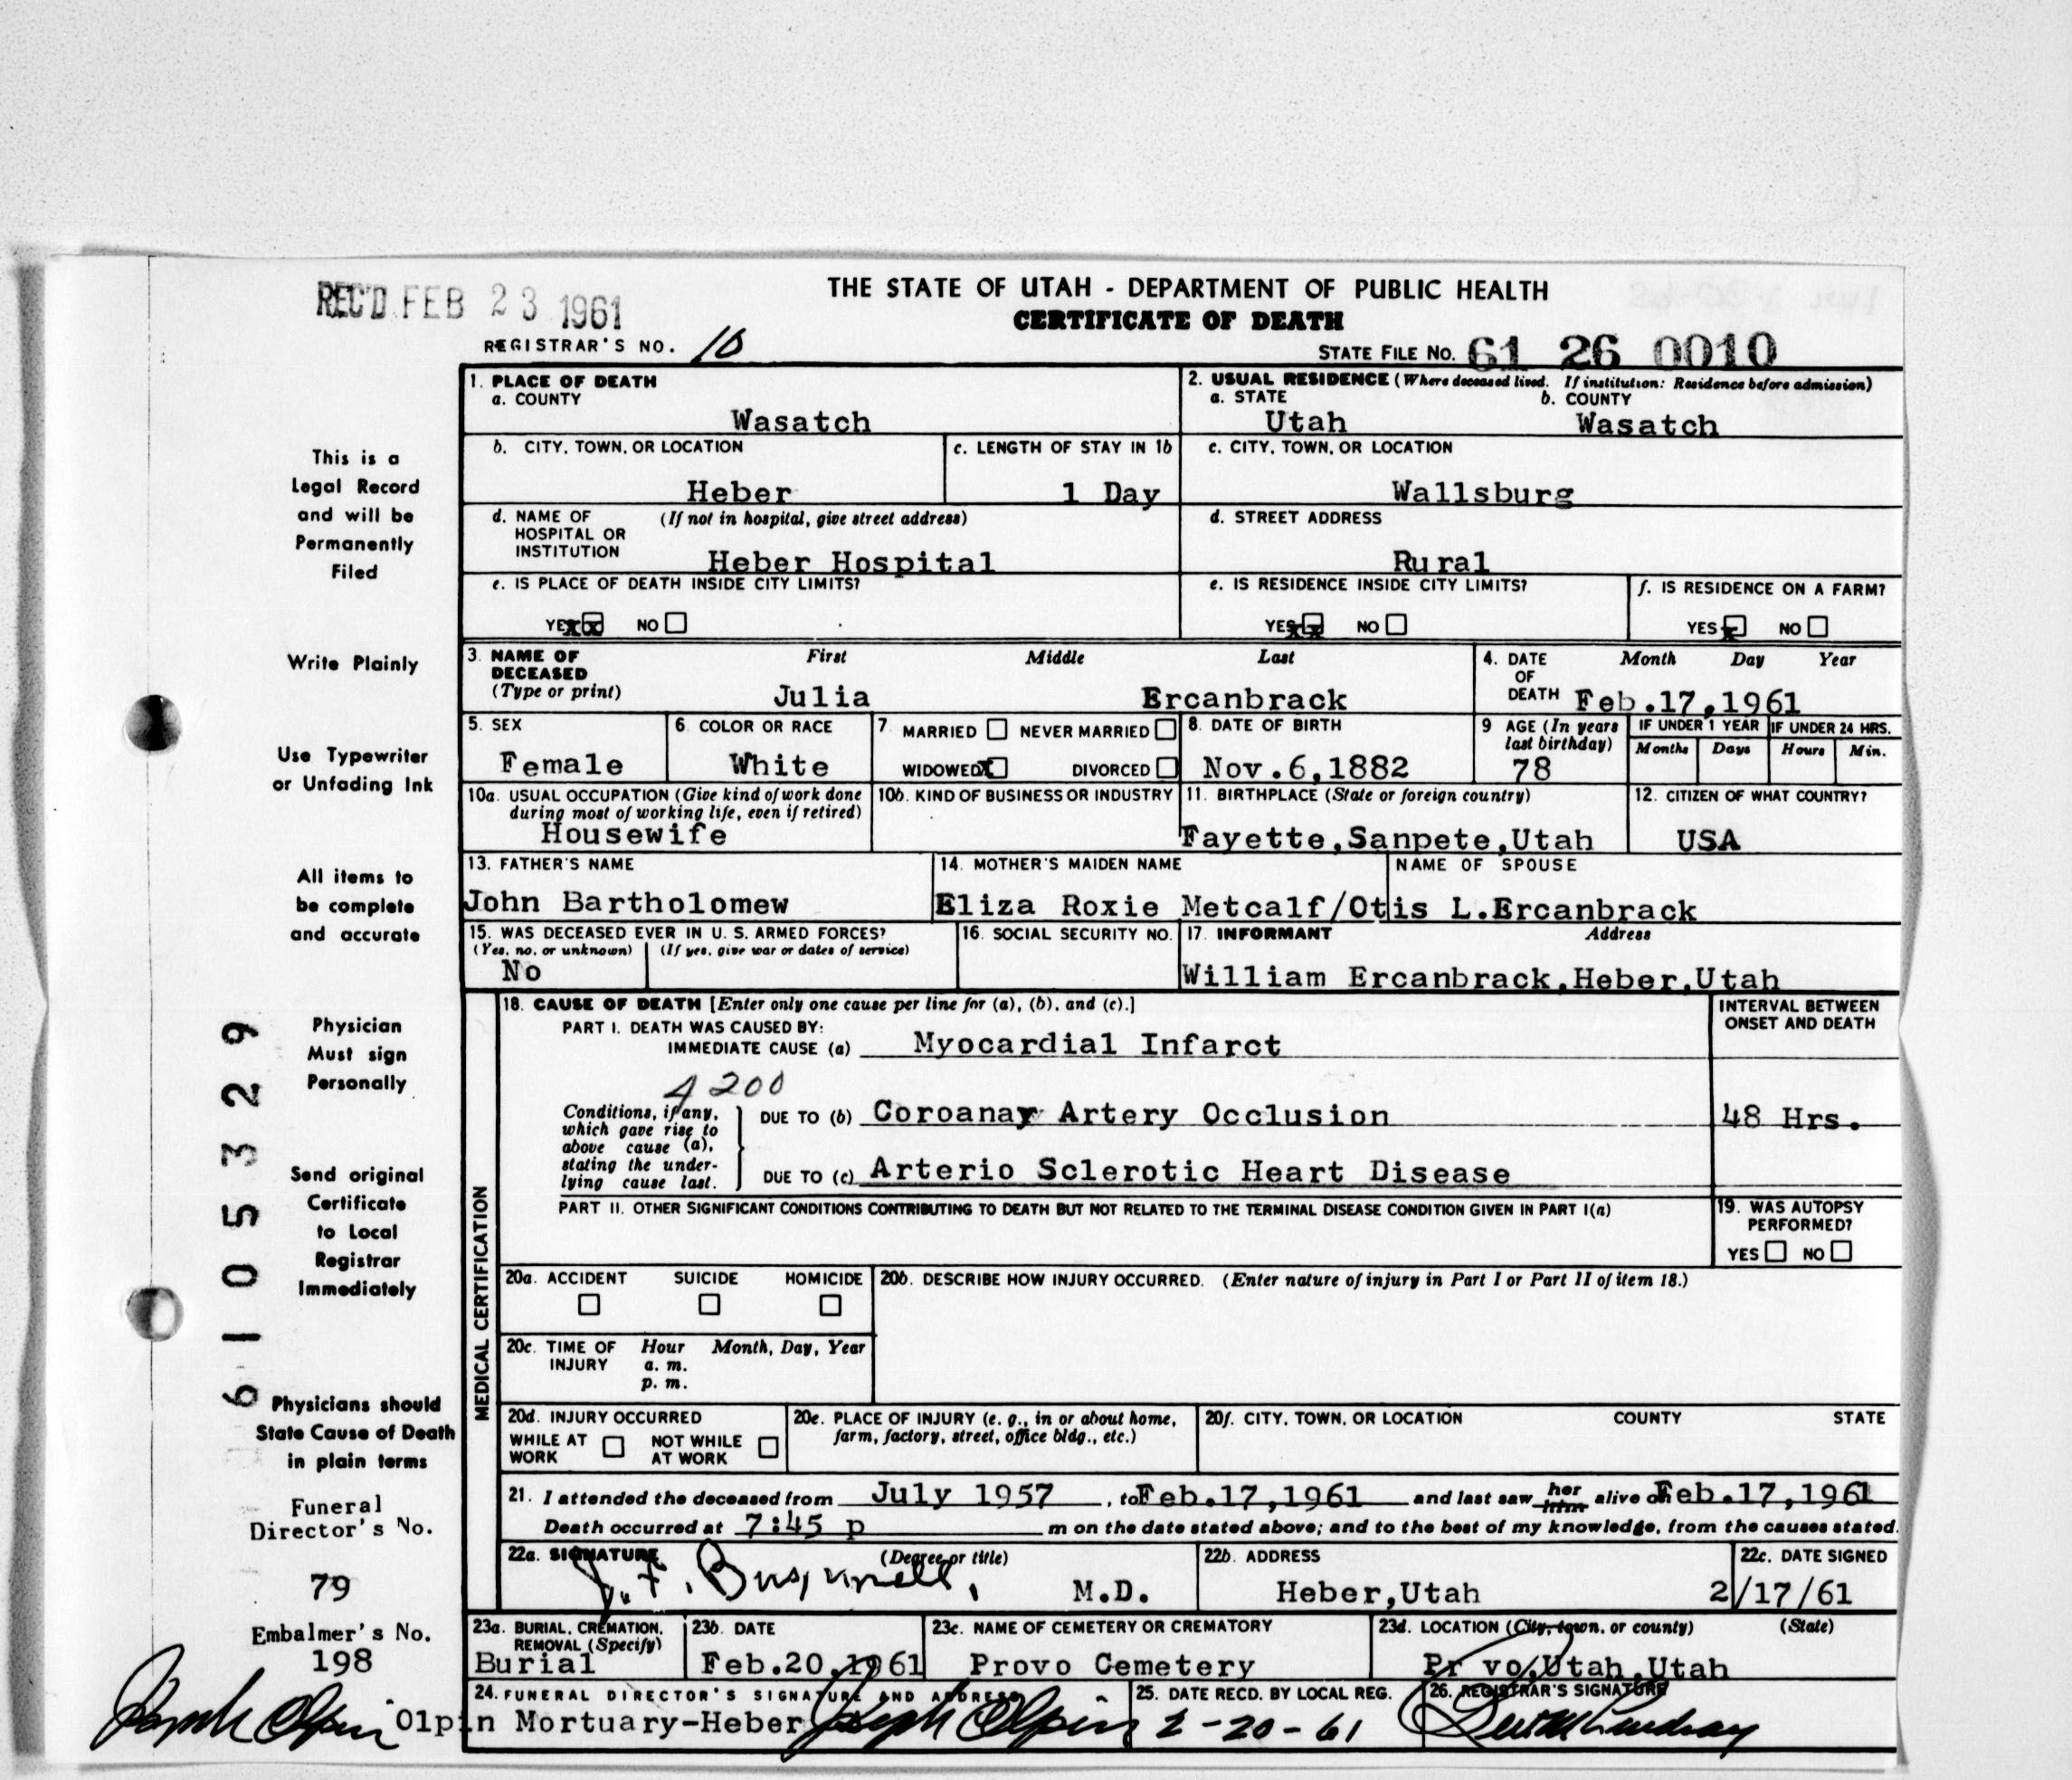 REC'D FEB 23 1961
THE STATE OF UTAH - DEPARTMENT OF PUBLIC HEALTH
CERTIFICATE OF DEATH
REGISTRAR'S NO. 10
STATE FILE NO. 61 26 0010
This is a
Legal Record
and will be
Permanently
Filed
Write Plainly
Use Typewriter
or Unfading Ink
All items to
be complete
and accurate
Physician
Must sign
Personally
Send original
Certificate
to Local
Registrar
Immediately
Physicians should
State Cause of Death
in plain terms
Funeral
Director's No.
79
Embalmer's No.
198
Joseph Olpin
6105329
1. PLACE OF DEATH
a. COUNTY
Wasatch
2. USUAL RESIDENCE (Where deceased lived. If institution: Residence before admission)
a. STATE b. COUNTY
Utah Wasatch
b. CITY, TOWN, OR LOCATION
Heber
c. LENGTH OF STAY IN 1b
1 Day
c. CITY, TOWN, OR LOCATION
Wallsburg
d. NAME OF (If not in hospital, give street address)
HOSPITAL OR
INSTITUTION Heber Hospital
d. STREET ADDRESS
Rural
e. IS PLACE OF DEATH INSIDE CITY LIMITS?
YES xx NO
e. IS RESIDENCE INSIDE CITY LIMITS?
YES xx NO
f. IS RESIDENCE ON A FARM?
YES x NO
3. NAME OF First Middle Last
DECEASED
(Type or print) Julia Ercanbrack
4. DATE Month Day Year
OF
DEATH Feb.17,1961
5. SEX
Female
6. COLOR OR RACE
White
7 MARRIED NEVER MARRIED
WIDOWED x DIVORCED
8. DATE OF BIRTH
Nov.6,1882
9 AGE (In years
last birthday)
78
IF UNDER 1 YEAR IF UNDER 24 HRS.
Months Days Hours Min.
10a. USUAL OCCUPATION (Give kind of work done
during most of working life, even if retired)
Housewife
10b. KIND OF BUSINESS OR INDUSTRY
11. BIRTHPLACE (State or foreign country)
Fayette,Sanpete,Utah
12. CITIZEN OF WHAT COUNTRY?
USA
13. FATHER'S NAME
John Bartholomew
14. MOTHER'S MAIDEN NAME NAME OF SPOUSE
Eliza Roxie Metcalf/Otis L.Ercanbrack
15. WAS DECEASED EVER IN U. S. ARMED FORCES?
(Yes, no, or unknown) (If yes, give war or dates of service)
No
16. SOCIAL SECURITY NO.
17. INFORMANT Address
William Ercanbrack,Heber,Utah
MEDICAL CERTIFICATION
18. CAUSE OF DEATH [Enter only one cause per line for (a), (b), and (c).]
INTERVAL BETWEEN
ONSET AND DEATH
PART I. DEATH WAS CAUSED BY:
IMMEDIATE CAUSE (a) Myocardial Infarct
4200
Conditions, if any,
which gave rise to
above cause (a),
stating the under-
lying cause last.
DUE TO (b) Coroanay Artery Occlusion 48 Hrs.
DUE TO (c) Arterio Sclerotic Heart Disease
PART II. OTHER SIGNIFICANT CONDITIONS CONTRIBUTING TO DEATH BUT NOT RELATED TO THE TERMINAL DISEASE CONDITION GIVEN IN PART I(a)
19. WAS AUTOPSY
PERFORMED?
YES NO
20a. ACCIDENT SUICIDE HOMICIDE
20b. DESCRIBE HOW INJURY OCCURRED. (Enter nature of injury in Part I or Part II of item 18.)
20c. TIME OF Hour Month, Day, Year
INJURY a. m.
p. m.
20d. INJURY OCCURRED
WHILE AT NOT WHILE
WORK AT WORK
20e. PLACE OF INJURY (e. g., in or about home,
farm, factory, street, office bldg., etc.)
20f. CITY, TOWN, OR LOCATION COUNTY STATE
21. I attended the deceased from July 1957, to Feb.17,1961 and last saw her him alive on Feb.17,1961
Death occurred at 7:45 p m on the date stated above; and to the best of my knowledge, from the causes stated.
22a. SIGNATURE (Degree or title)
M.D.
22b. ADDRESS
Heber,Utah
22c. DATE SIGNED
2/17/61
23a. BURIAL, CREMATION,
REMOVAL (Specify)
Burial
23b. DATE
Feb.20,1961
23c. NAME OF CEMETERY OR CREMATORY
Provo Cemetery
23d. LOCATION (City, town, or county) (State)
Pr vo,Utah,Utah
24. FUNERAL DIRECTOR'S SIGNATURE AND ADDRESS
Olpin Mortuary-Heber Joseph Olpin
25. DATE RECD. BY LOCAL REG.
2-20-61
26. REGISTRAR'S SIGNATURE